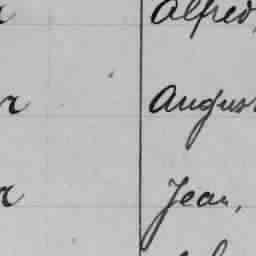 Alfred,
r August
r Jean,